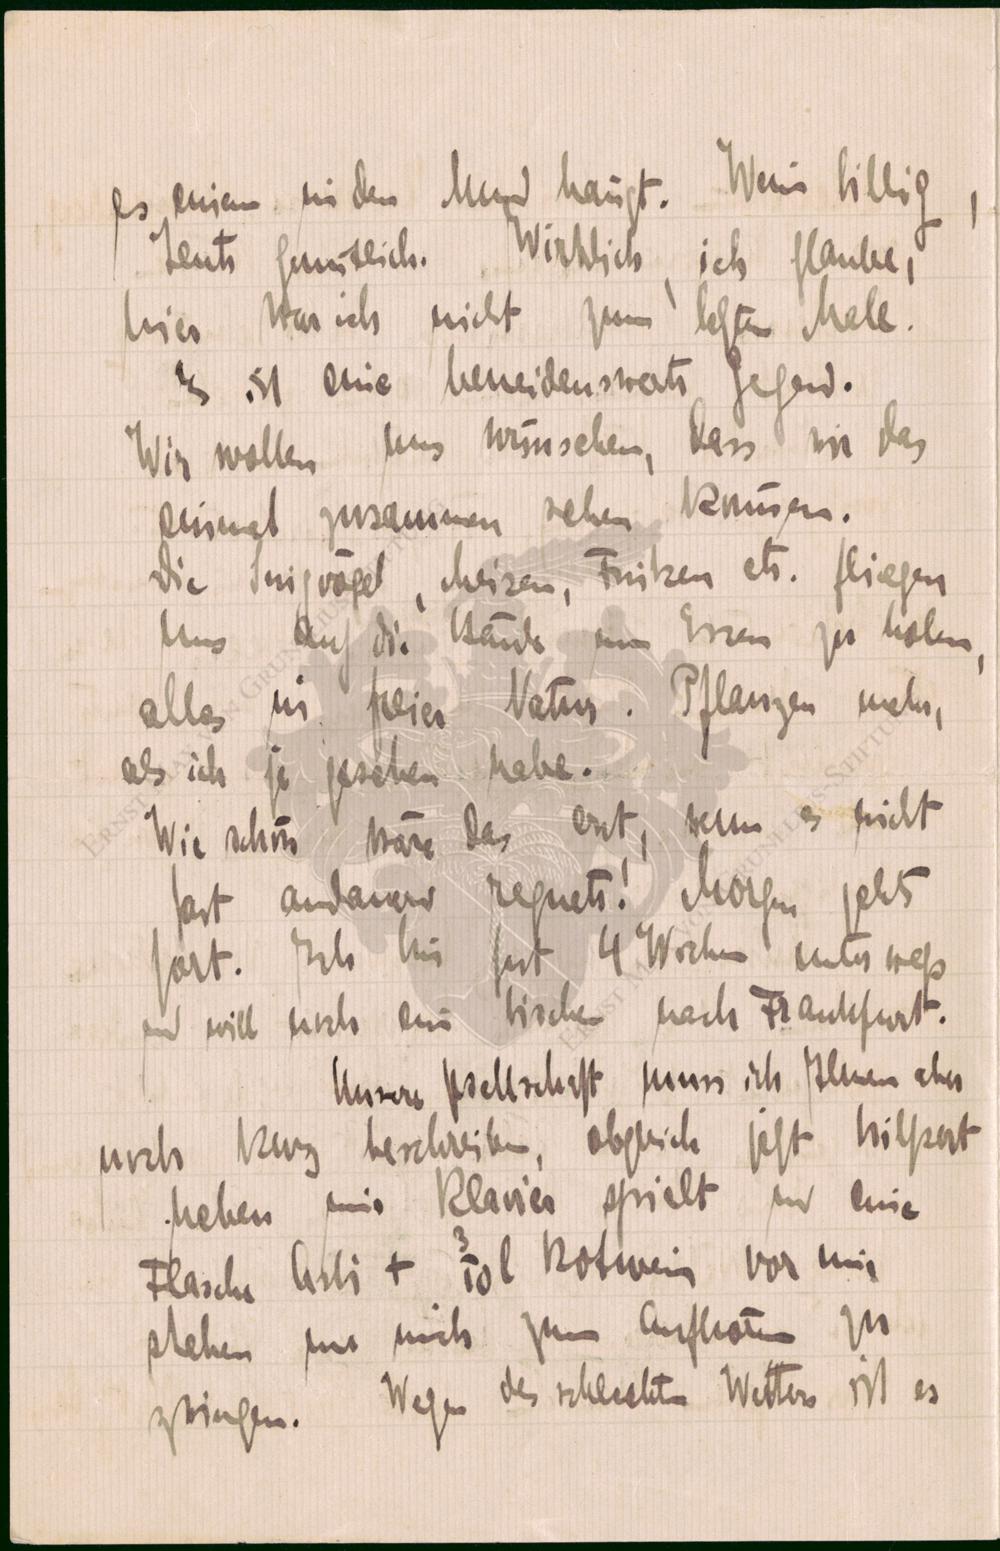 es einem in den Mund hängt. Wein billig,
Leute gemütlich. Wirklich, ich glaube,
hier war ich nicht zum letzten Male.
Es ist eine beneidenswerte Gegend.
Wir wollen uns wünschen, dass wir das
einmal zusammen sehen können.
Die Singvögel, Meisen, Finken etc. fliegen
uns auf die Hände um Essen zu holen,
alles in freier Natur. Pflanzen mehr,
als ich je gesehen habe.
Wie schön wäre das erst, wenn es nicht
fast andauernd regnete! Morgen gehts
fort. Ich bin fast 4 Wochen unterwegs
und will noch ein bischen nach Frankfurt.
Unsere Gesellschaft muss ich Ihnen aber
noch kurz beschreiben, obgleich jetzt
neben mir Klavier spielt und eine
Flasche Asti + 3/10 l Rotwein vor mir
stehen um mich zum Aufhören zu
zwingen. Wegen des schlechten Wetters ist es
ERNST MAX VON GRUNELIUS-STIFTUNG
ERNST MAX VON GRUNELIUS-STIFTUNG